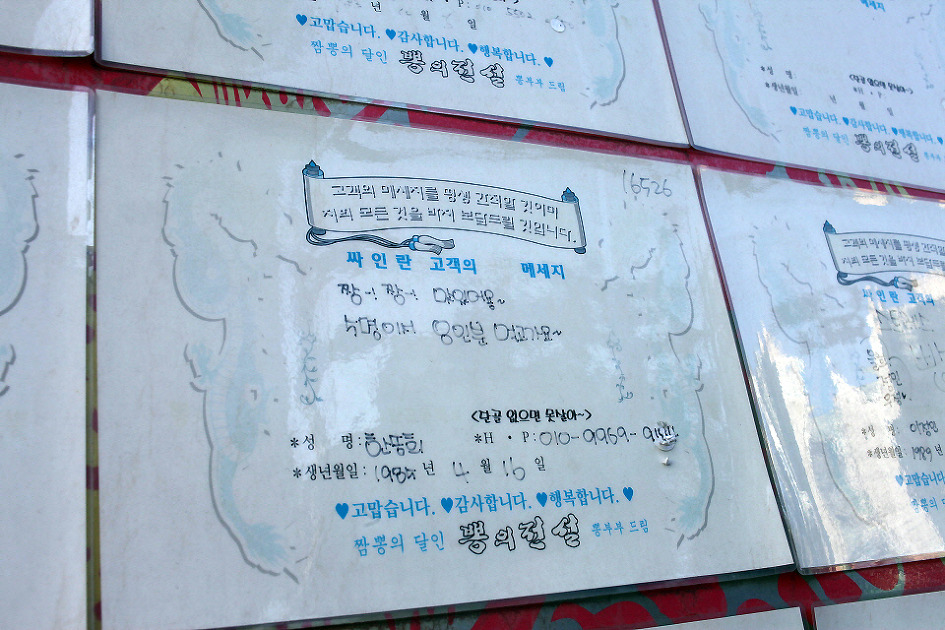 ♥고맙습니다. ♥감사합니다. ♥행복합니다. ♥
짬뽕의 달인 뽕의전설 뽕부부 드림
메세지
<단골 없으면 못살아~>
*성 명 *H · P:
*생년월일: 년 월
♥고맙습니다. ♥감사합니다. ♥행복합니다.
짬뽕의 달인 뽕의전설
16526
고객의 메세지를 평생 간직할 것이며
저희 모든 것을 바쳐 보답드릴 것입니다.
싸인란 고객의 메세지
짱~! 짱~! 맛있어용~
두명이서 오인분 먹고가요~
<단골 없으면 못살아~>
*성 명: *H · P: 010-9969-
*생년월일: 년 4 월 16 일
♥고맙습니다. ♥감사합니다. ♥행복합니다. ♥
짬뽕의 달인 뽕의전설 뽕부부 드림
고객의 메세지를 평생 간직할
저희 모든 것을 바쳐 보답드릴
싸인란 고객의
*성 명:
*생년월일: 1989 년
♥고맙습니다.
짬뽕의